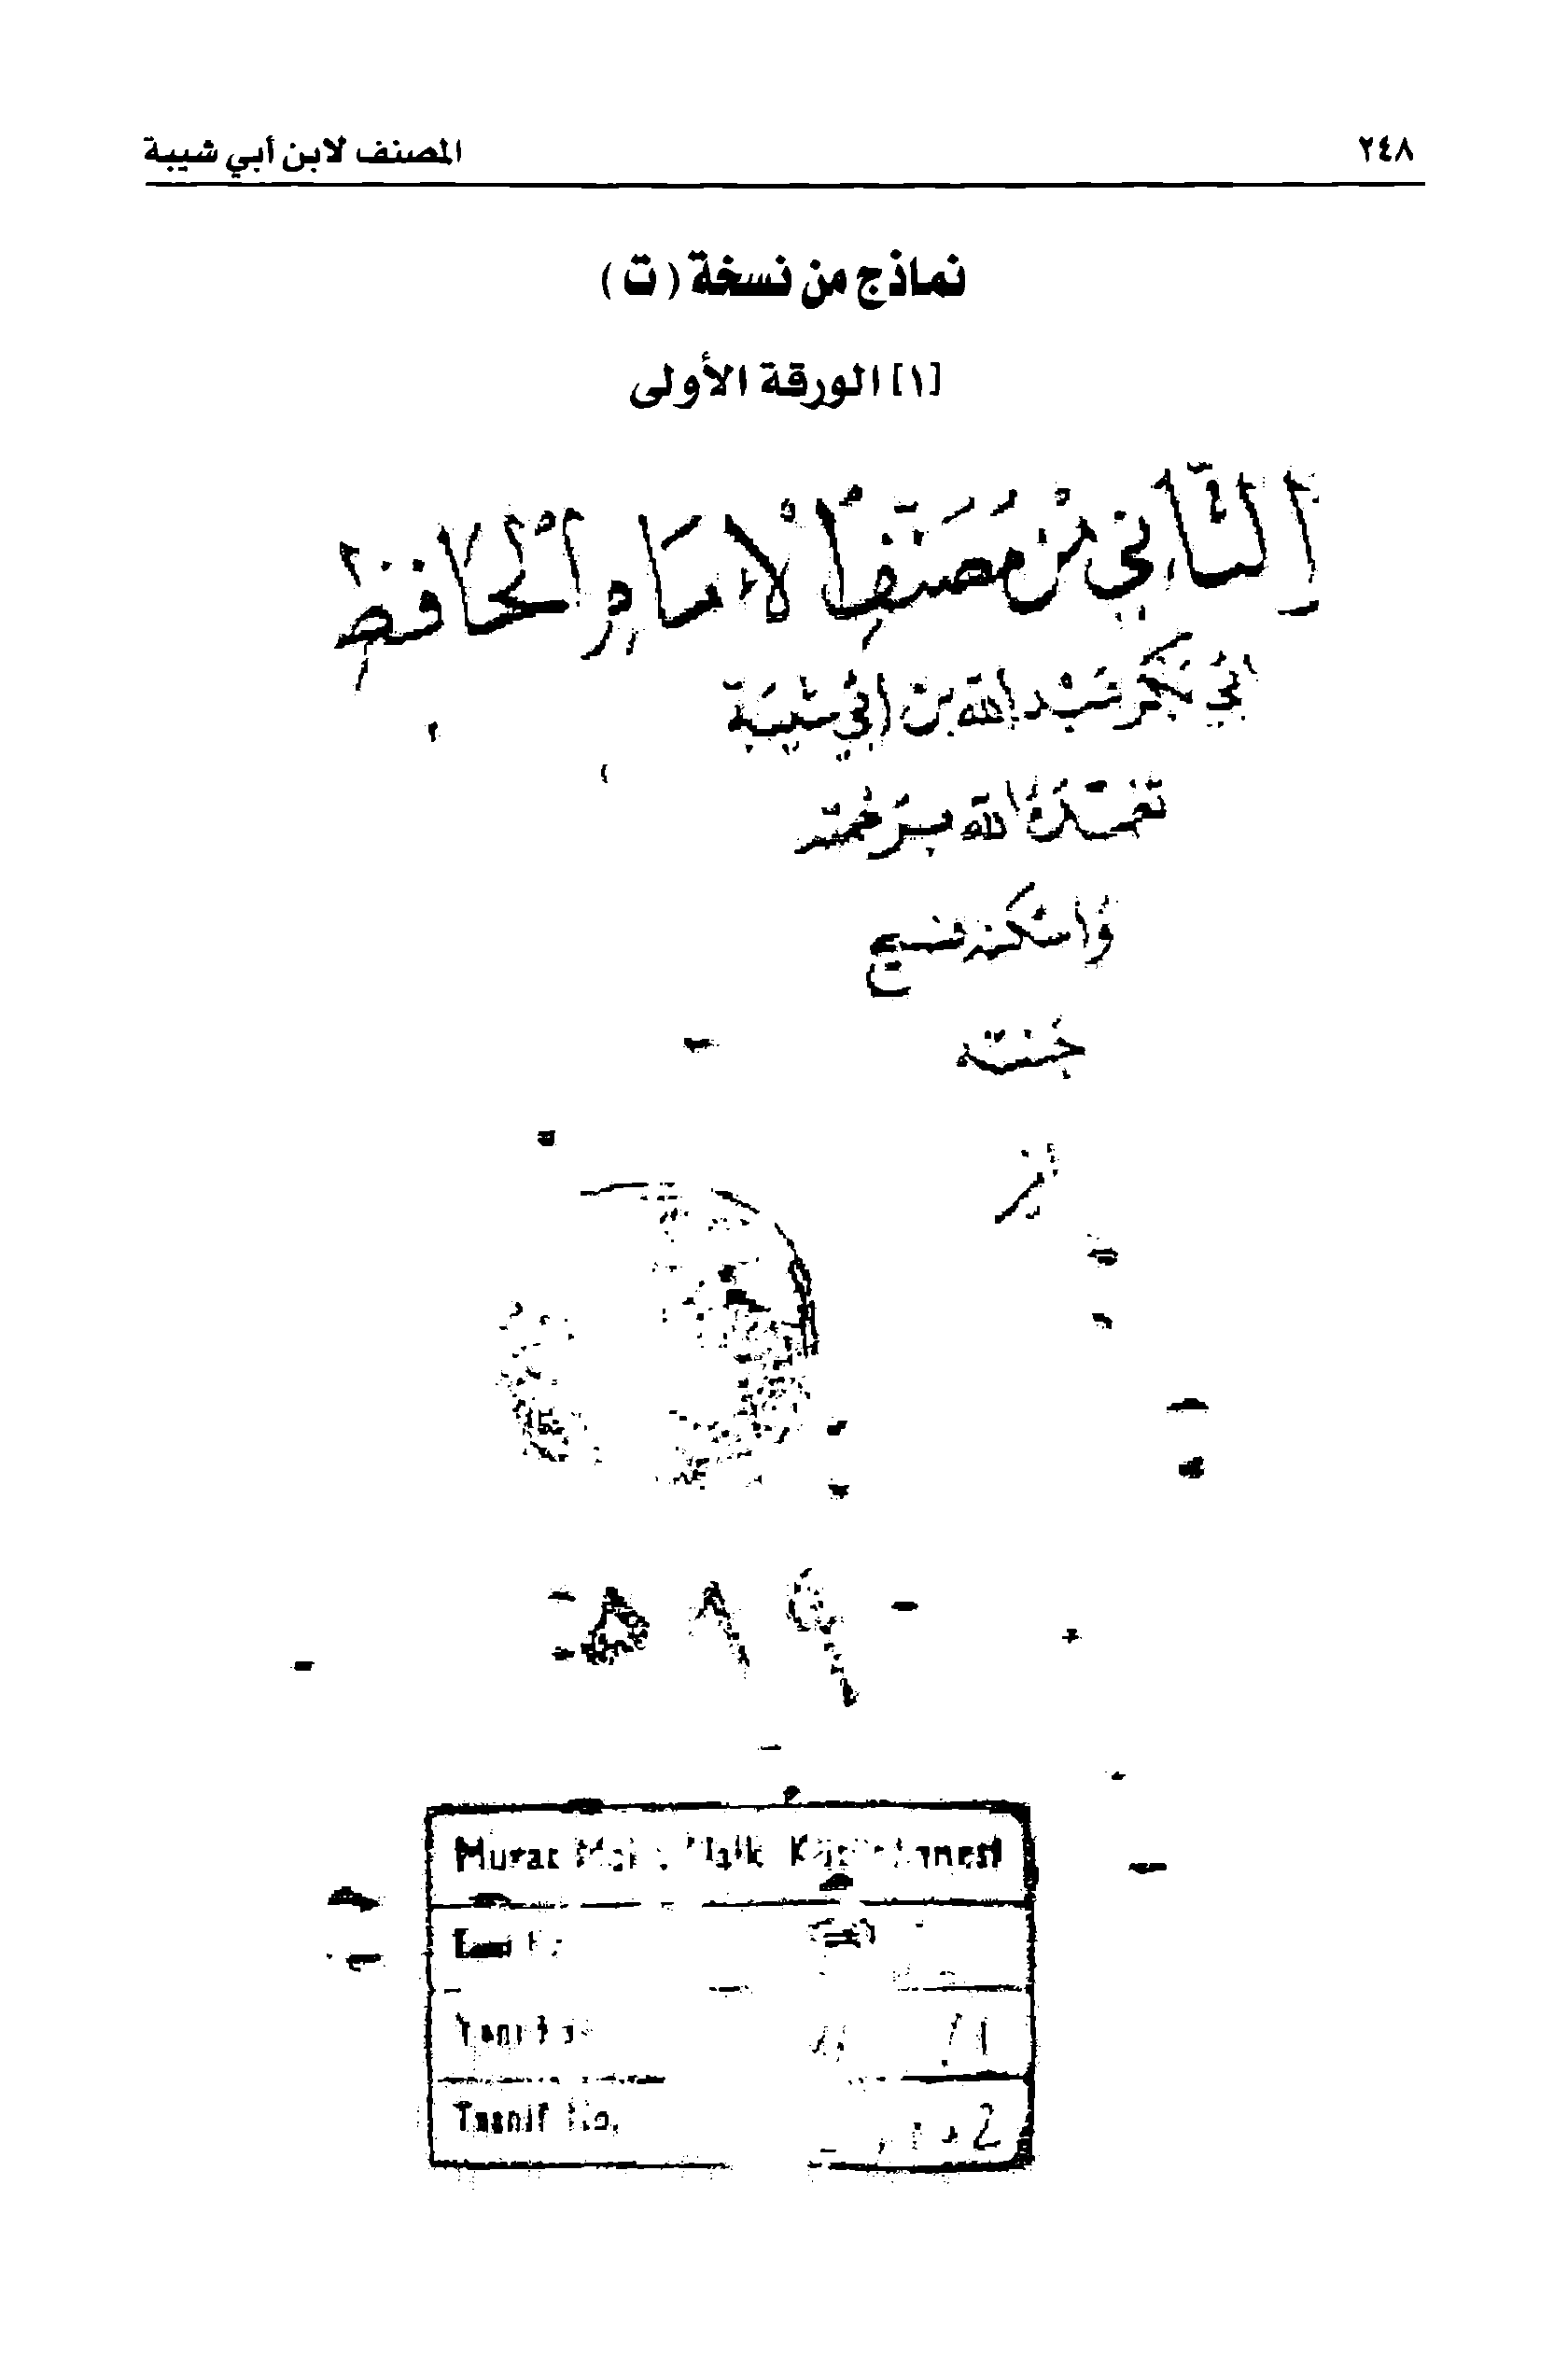 ٢٤٨ المصنف لابن أبي شيبة
نماذج من نسخة (ت)
[١] الورقة الأولى
الثَّانِي مِنْ مُصَنَّفِ الْاِمَامِ الْحَافِظِ
ابي بَكْر عَبْد الله بن ابي شَيْبَة
تغمّدَهُ الله برَحْمته
وَاسْكنه فسيح
جَنته
٥٨٩
Murat Halk
Tasnif No.
2